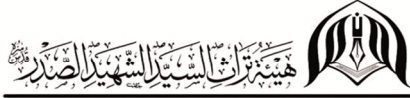 هيئة تراث السيد الشهيد الصدر